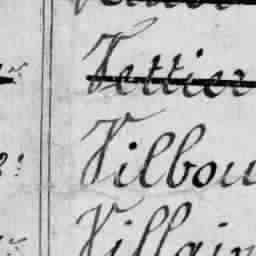 Vettier
Vilbou
Villain